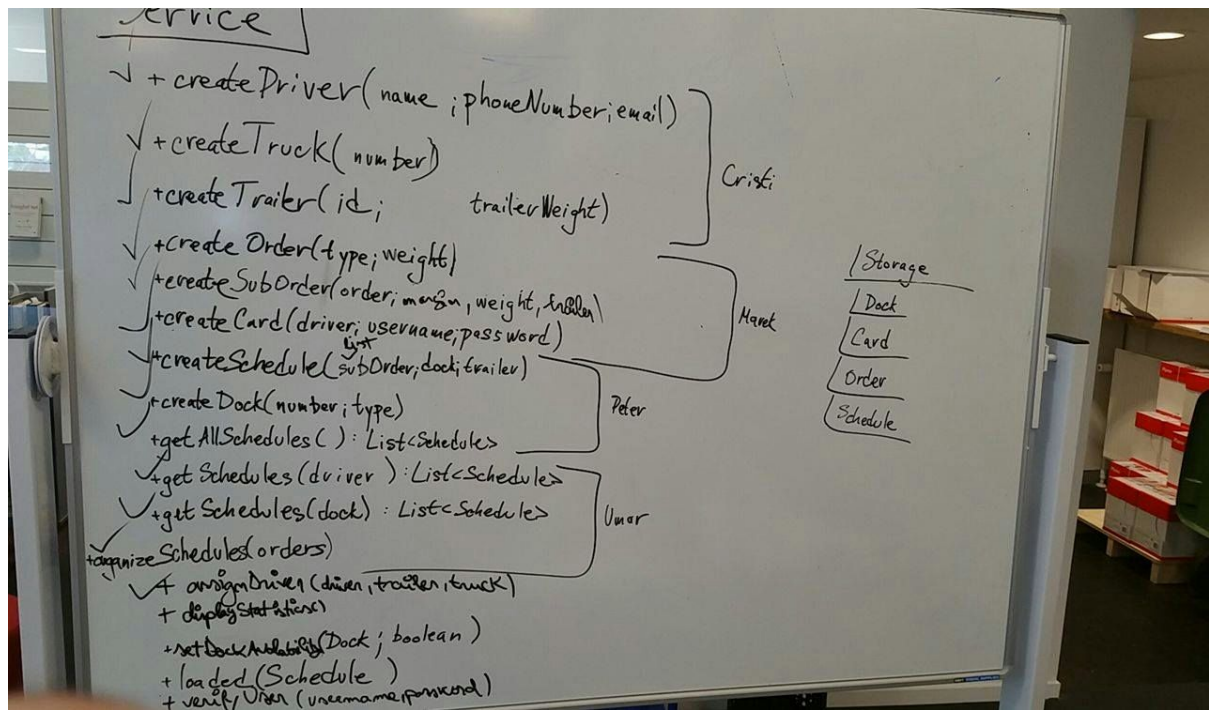 Service
+ createDriver(name ; phoneNumber; email)
+ createTruck(number)
+ createTrailer(id; trailerWeight)
+ create Order(type; weight)
+ createSubOrder(order; margin, weight, trailer)
+ createCard(driver; username; password)
List
+ createSchedule(subOrder; dock; trailer)
+ createDock(number; type)
+ getAllSchedules( ) : List<Schedule>
+ get Schedules (driver ) : List<Schedule>
+ get Schedules(dock) : List<Schedule>
+ organizeSchedules(orders)
+ assignDriver (driver, trailer, truck)
+ displayStatistics()
+ setDockAvailability(Dock ; boolean )
+ loaded (Schedule )
+ verifyUser (username, password)
Cristi
Marek
Peter
Umar
Storage
Dock
Card
Order
Schedule